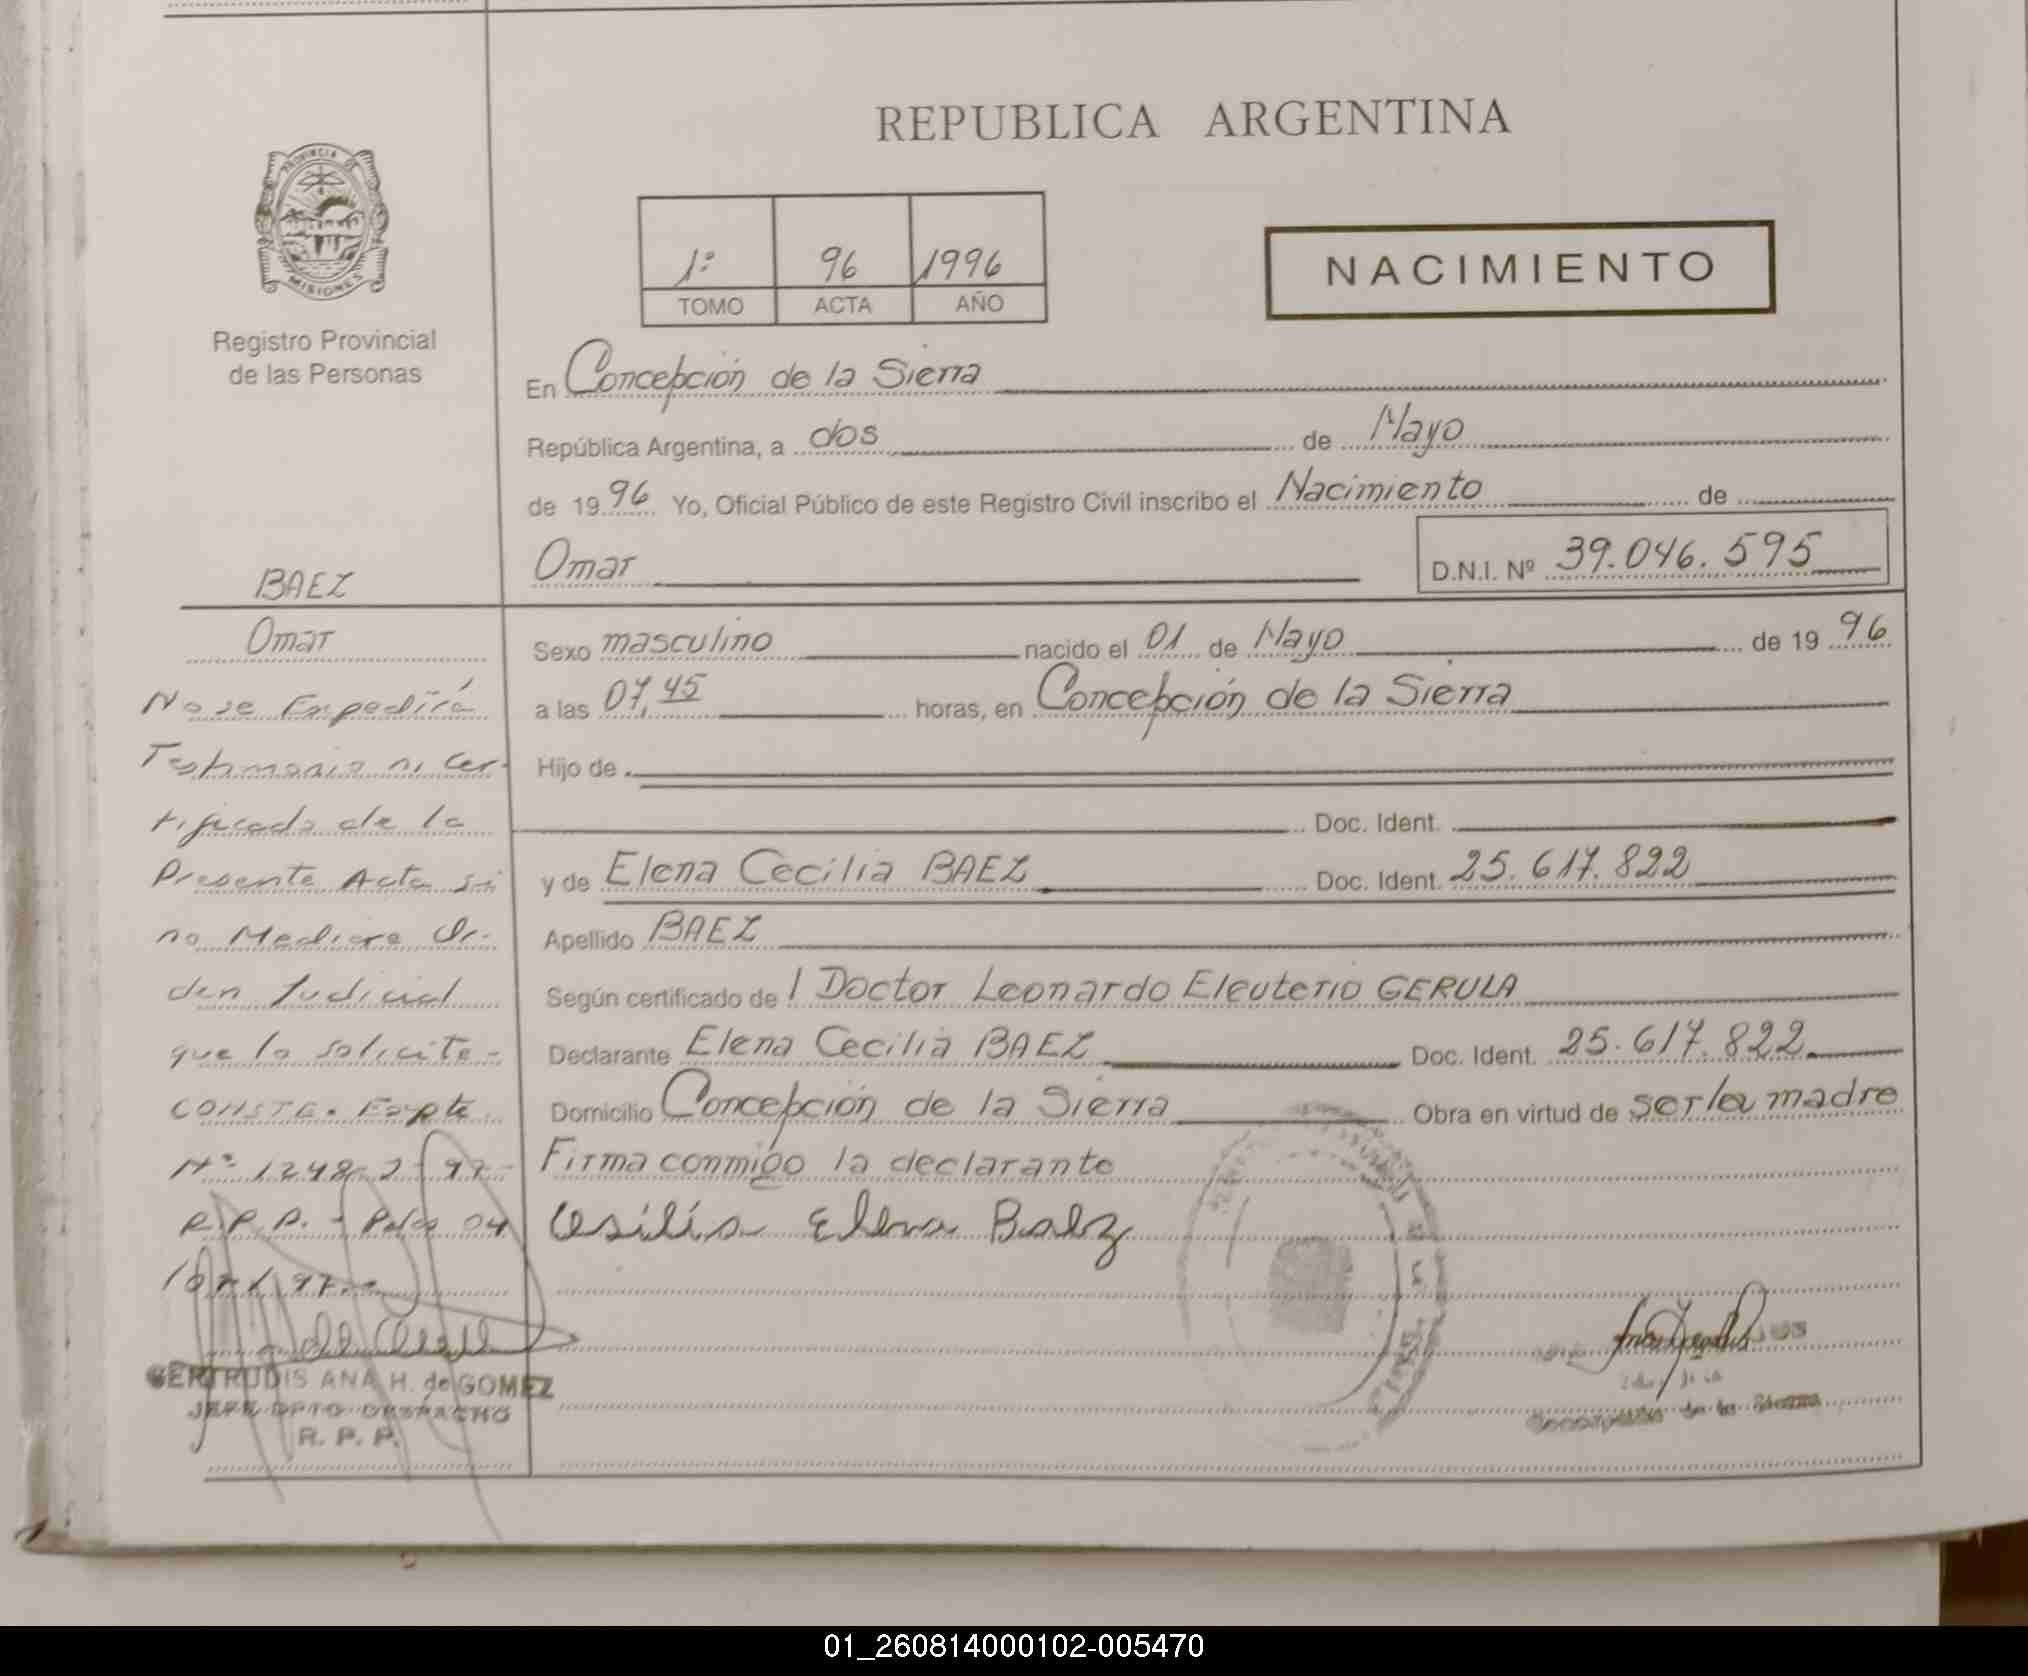 REPUBLICA ARGENTINA
PROVINCIA DE
MISIONES
Registro Provincial
de las Personas
1º 96 1996
TOMO ACTA AÑO
NACIMIENTO
En Concepción de la Sierra
República Argentina, a dos de Mayo
de 1996 Yo, Oficial Público de este Registro Civil inscribo el Nacimiento de
Omar D.N.I. Nº 39.046.595
Sexo masculino nacido el 01 de Mayo de 1996
a las 07,45 horas, en Concepción de la Sierra
Hijo de
Doc. Ident.
y de Elena Cecilia BAEZ Doc. Ident. 25.617.822
Apellido BAEZ
Según certificado de l Doctor Leonardo Eleuterio GERULA
Declarante Elena Cecilia BAEZ Doc. Ident. 25.617.822
Domicilio Concepción de la Sierra Obra en virtud de ser la madre
Firma conmigo la declarante
Cesilia Elena Baez
BAEZ
Omar
No se Expedirá
Testimonio ni Cer-
tificado de la
Presente Acta si
no Mediare Or-
den Judicial
que lo solicite-
CONSTE. Expte
Nº 1248-2-97-
R.P.P. - Pdas 04
GERTRUDIS ANA H. de GOMEZ
JEFE DPTO DESPACHO
R. P. P.
Concepción de la Sierra
01_260814000102-005470